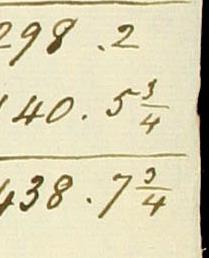 298 . 2
140 . 5 3/4
438 . 7 3/4